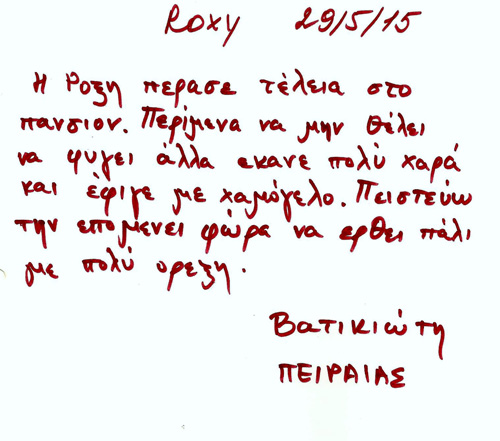 Roxy 29/5/15
Η Ροξη περασε τέλεια στο
πανσιον. Περίμενα να μην θέλει
να φυγει άλλα εκανε πολύ χαρά
και έφιγε με χαμόγελο. Πειστεύω
την επομενει φώρα να ερθει πάλι
με πολύ ορεξη.
Βατικιώτη
ΠΕΙΡΑΙΑΣ